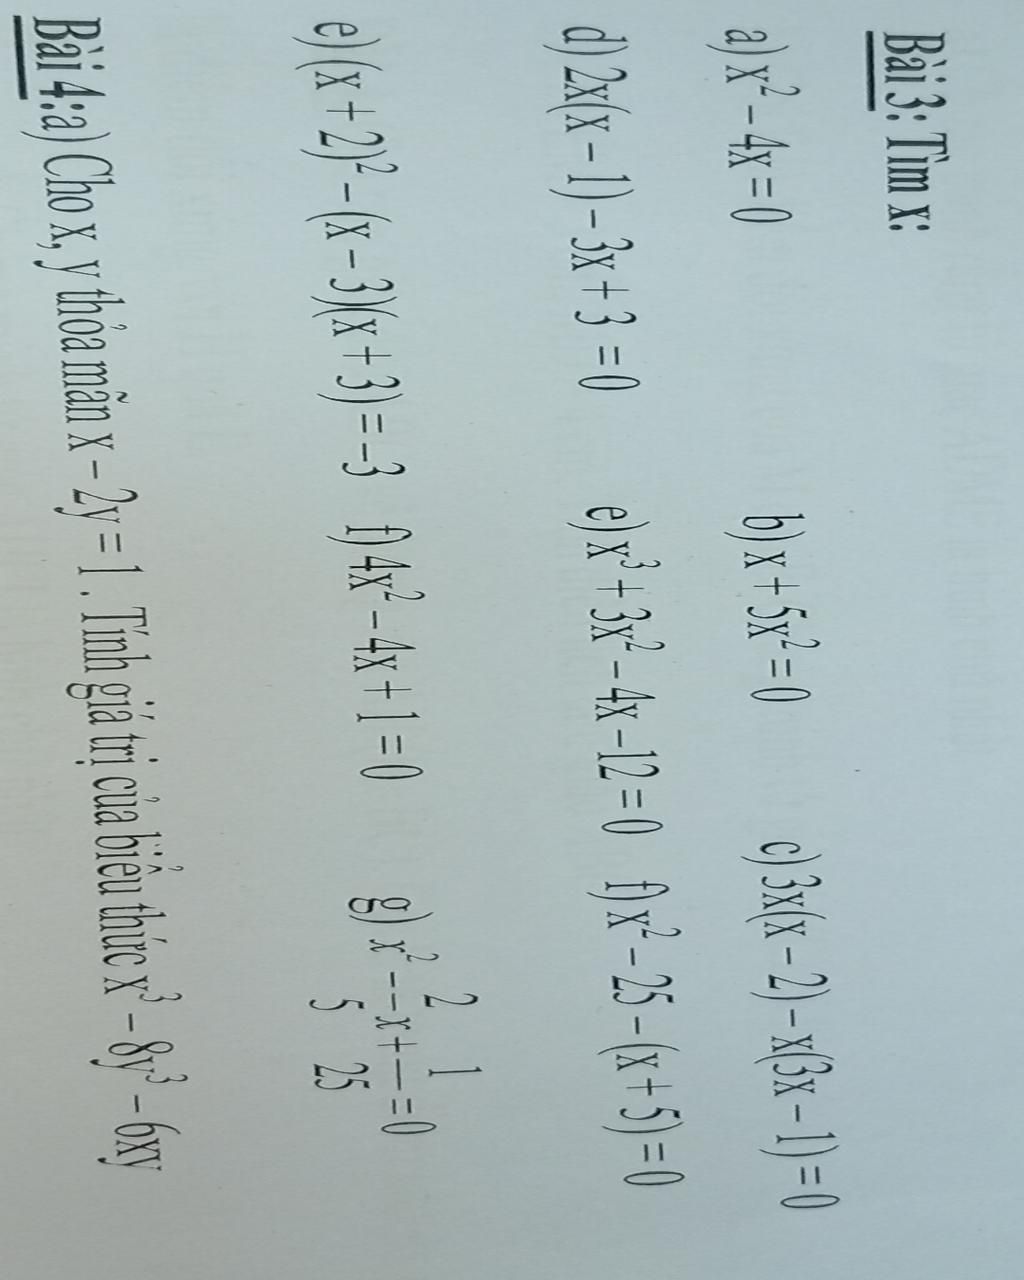 Bài 3: Tìm x:
a) x² – 4x = 0 b) x + 5x² = 0 c) 3x(x – 2) – x(3x – 1) = 0
d) 2x(x – 1) – 3x + 3 = 0 e) x³ + 3x² – 4x –12 = 0 f) x² – 25 – (x + 5) = 0
e) (x + 2)² – (x – 3)(x + 3) = –3 f) 4x² – 4x + 1 = 0 g) x² – 2/5 x + 1/25 = 0
Bài 4: a) Cho x, y thỏa mãn x – 2y = 1. Tính giá trị của biểu thức x³ – 8y³ – 6xy